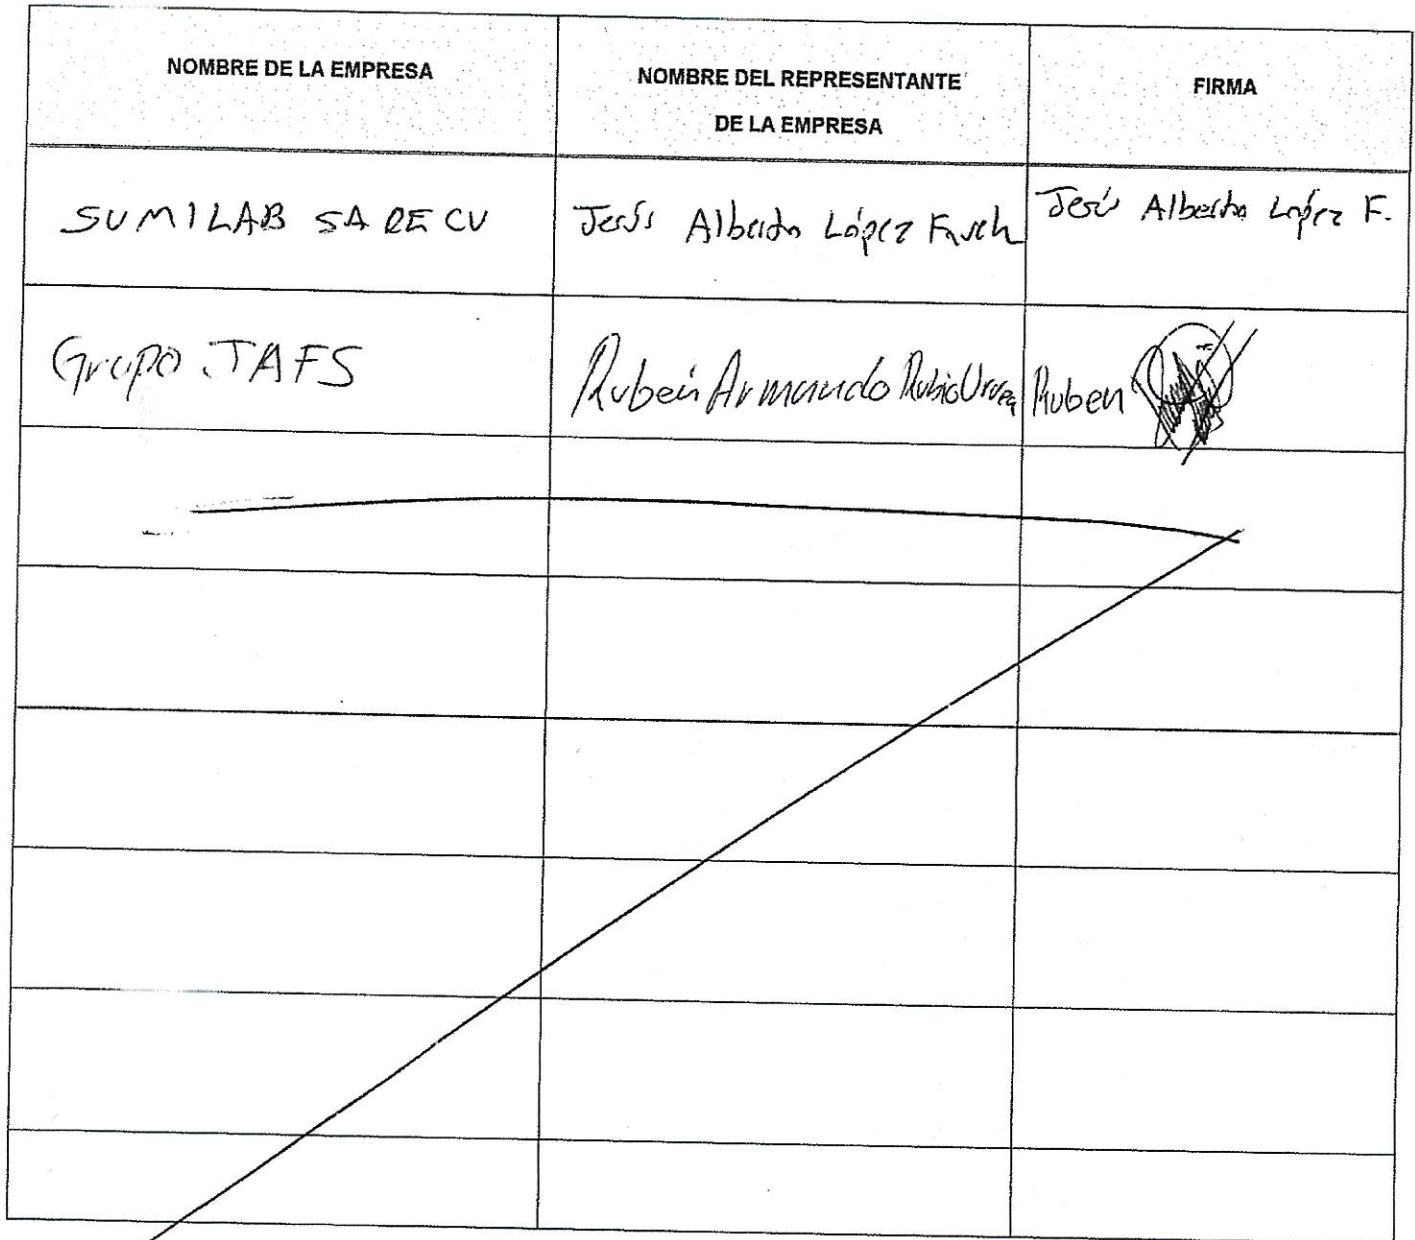 NOMBRE DE LA EMPRESA
NOMBRE DEL REPRESENTANTE
DE LA EMPRESA
FIRMA
SUMILAB SA DE CV
Jesús Alberto López
Jesús Alberto López F.
Grupo JAFS
Ruben Armando Rubio Urrea
Ruben